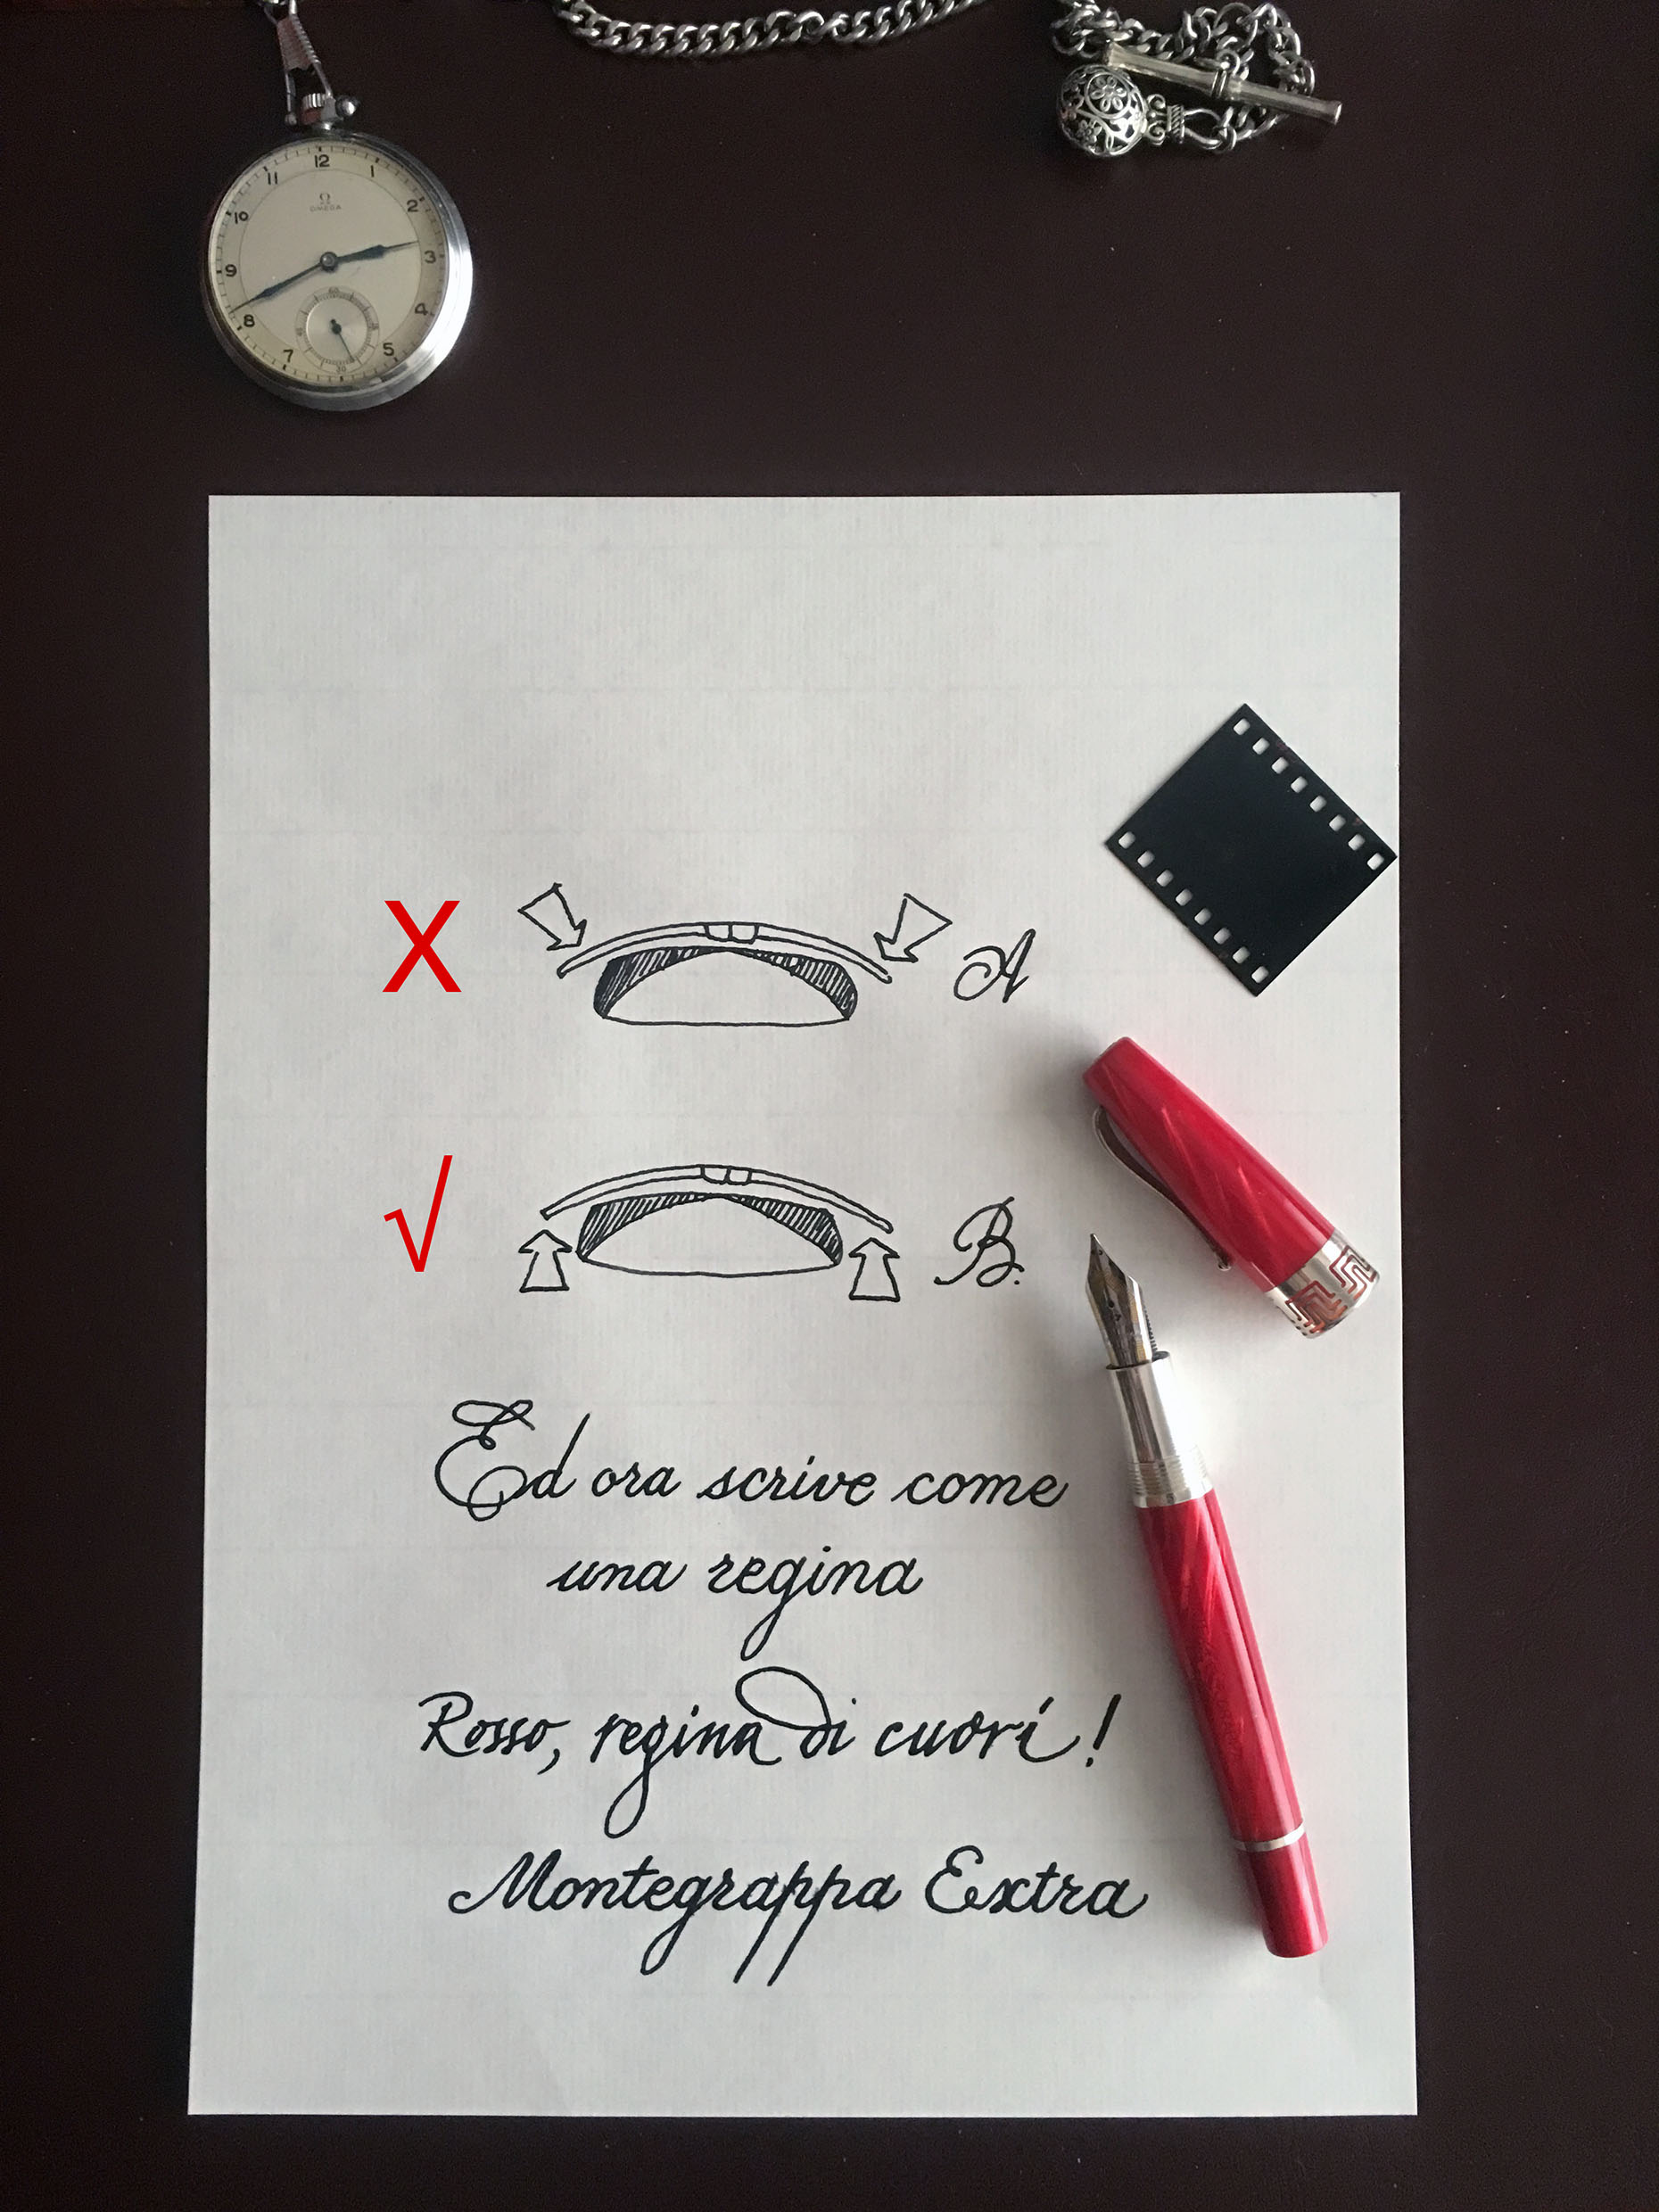 12
11
1
10
2
Ω
OMEGA
9
3
8
4
7
5
60
30
X
A
√
B.
Ed ora scrive come
una regina
Rosso, regina di cuori!
Montegrappa Extra